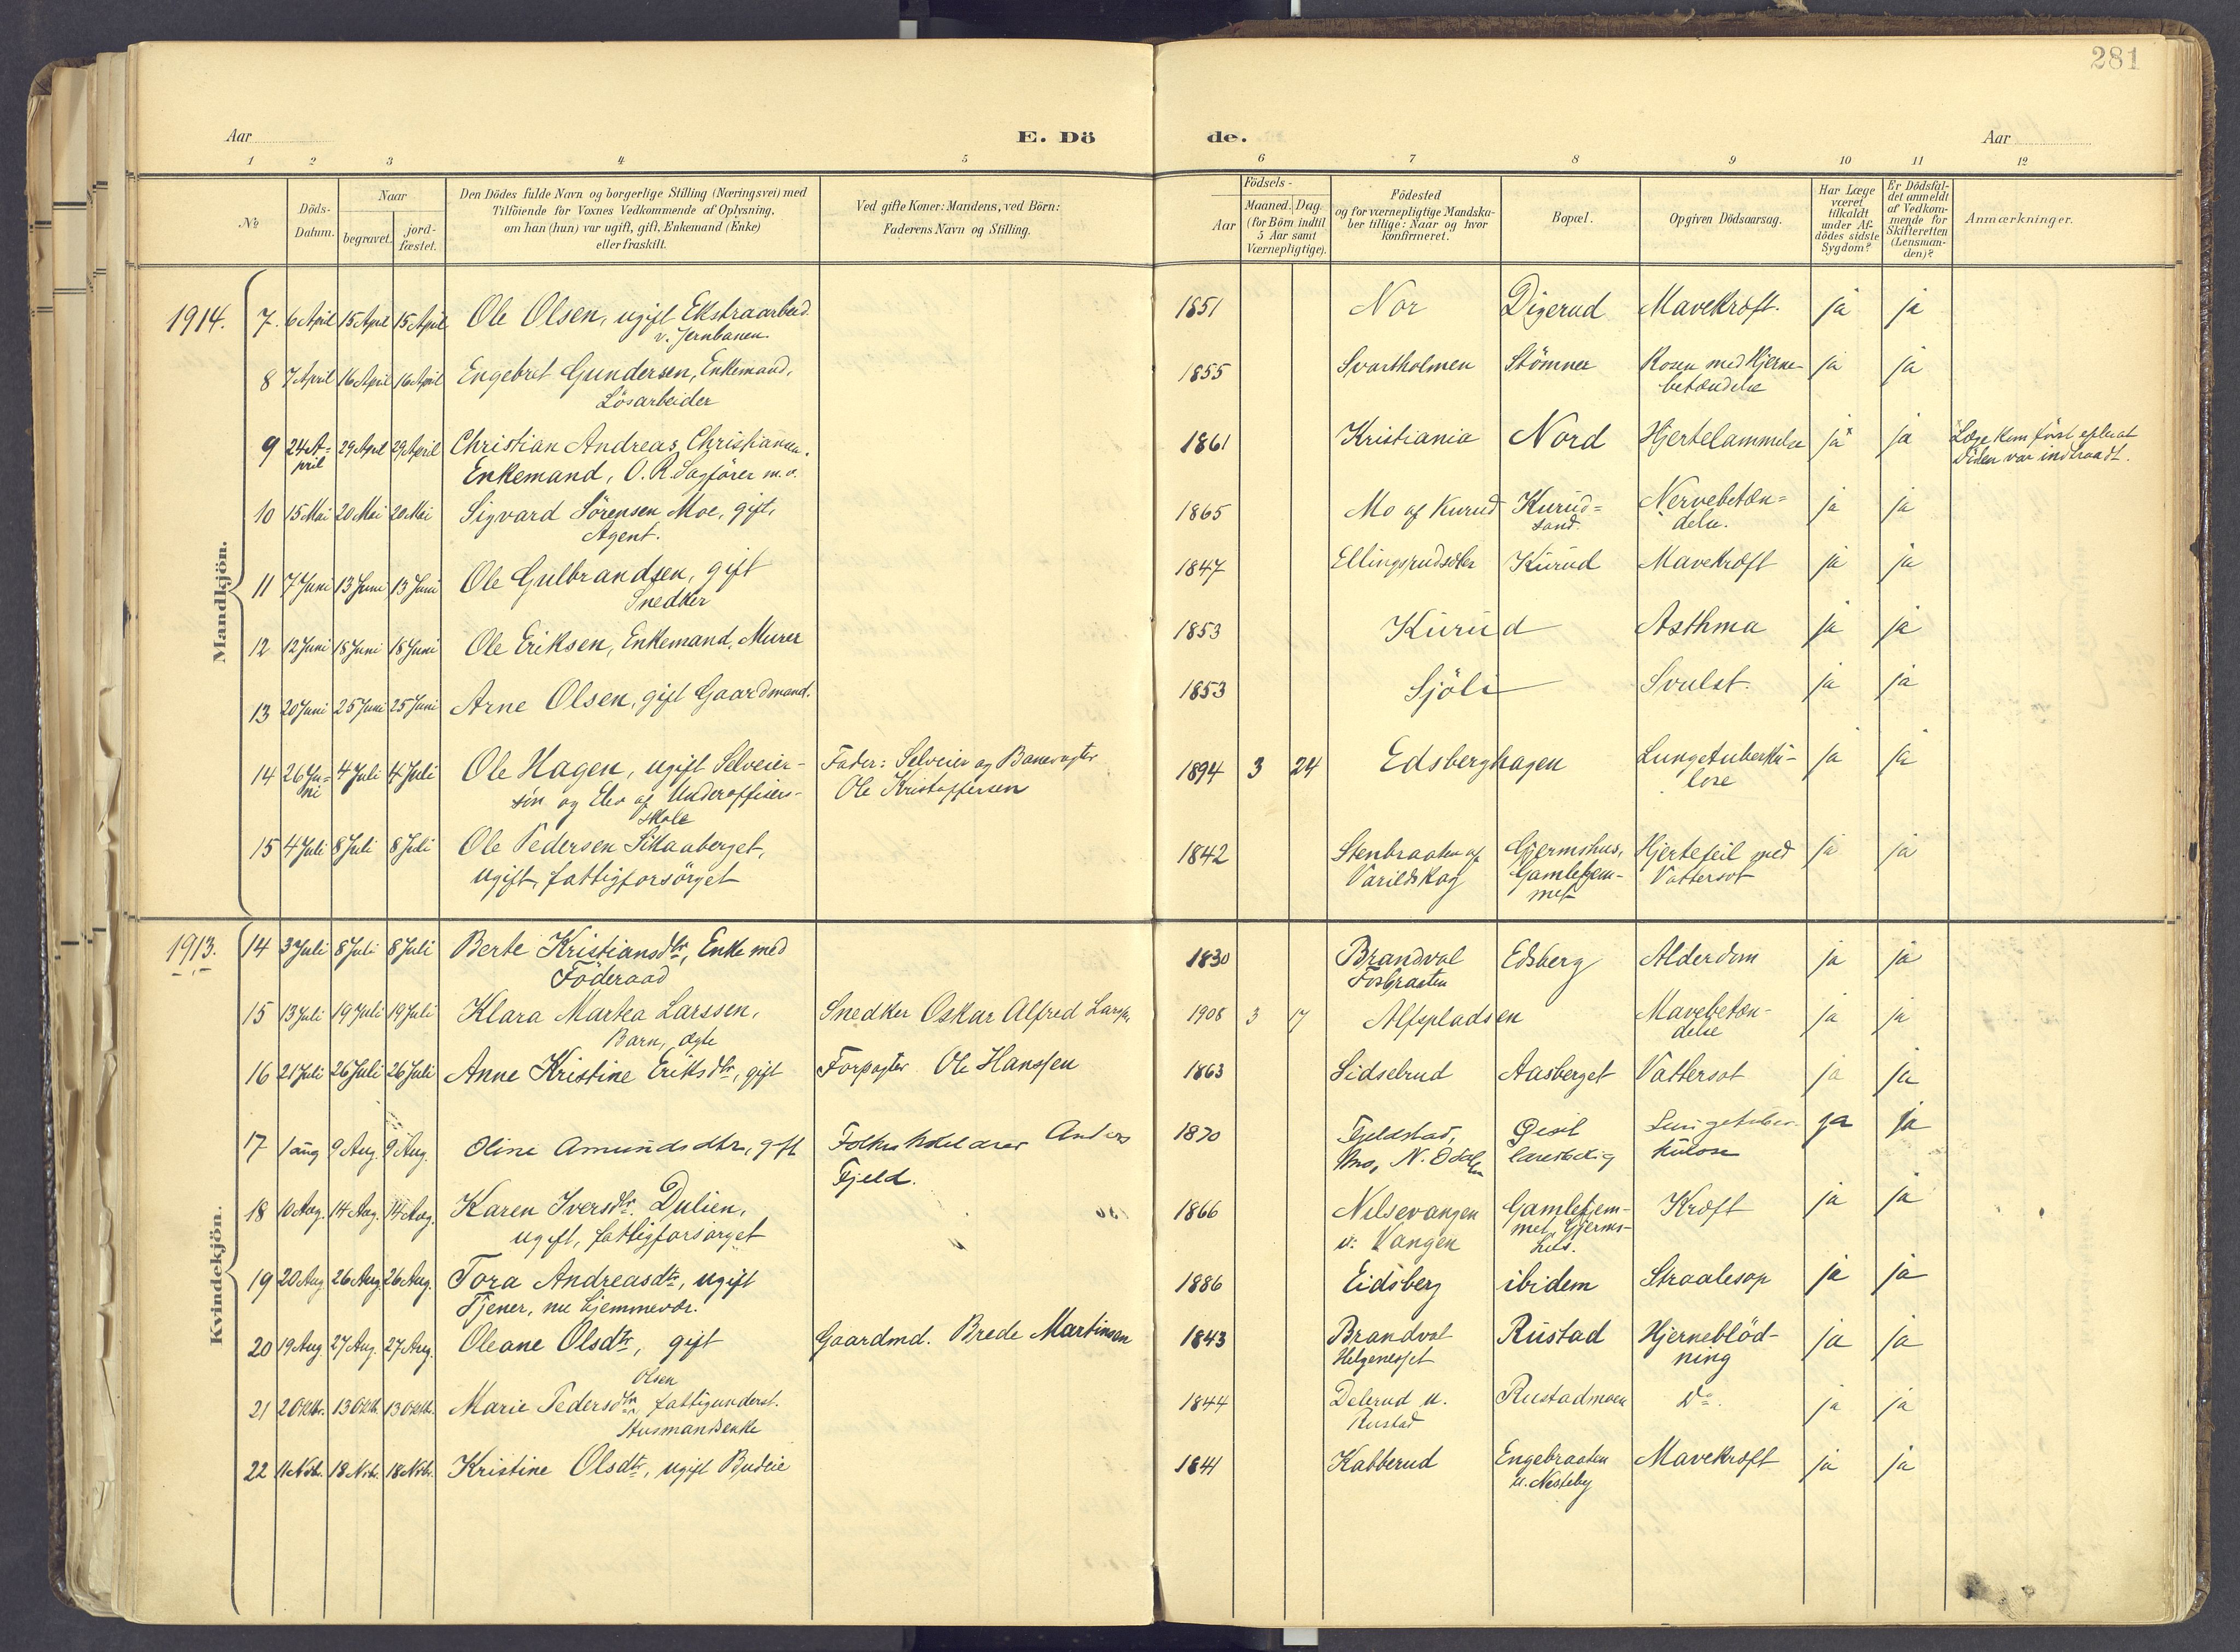 281
Aar E. Dö de. Aar
1 2 3 4 5 6 7 8 9 10 11 12
No
Döds-Datum.
Naar
begravet.
jord-fæstet.
Den Dödes fulde Navn og borgerlige Stilling (Næringsvei) med
Tilföiende for Voxnes Vedkommende af Oplysning,
om han (hun) var ugift, gift, Enkemand (Enke)
eller fraskilt.
Ved gifte Koner: Mandens, ved Börn:
Faderens Navn og Stilling.
Födsels-
Aar
Maaned. Dag.
(for Börn indtil
5 Aar samt
Værnepligtige).
Födested
og for værnepligtige Mandska-
ber tillige: Naar og hvor
konfirmeret.
Bopæl.
Opgiven Dödsaarsag.
Har Læge
været
tilkaldt
under Af-
dödes sidste
Sygdom?
Er Dödsfal-
det anmeldt
af Vedkom-
mende for
Skifteretten
(Lensman-
den)?
Anmærkninger.
Mandkjön.
1914. 7. 6 April 15 April 15 April Ole Olsen, ugift Ekstraarbeid. 1851 Nor Digerud Mavekræft. ja ja
v. Jernbanen.
8 7 April 16 April 16 April Engebret Gundersen, Enkemand, 1855 Svartholmen Stömner Rosen med Hjerne- ja ja
Lösarbeider betændelse
9 24 A- 29 April 29 April Christian Andreas Christiansen. 1861 Kristiania Nord Hjertelammelse ja* ja Læge kom först efterat
pril Enkemand, O. R. Sagförer m.v. Döden var indtraadt.
10 15 Mai 20 Mai 20 Mai Sigvard Sörensen Moe, gift, 1865 Mo af Kurud Kurud= Nervebetæn= ja ja
Agent. sand. delse.
11 7 Juni 13 Juni 13 Juni Ole Gulbrandsen, gift 1847 Kurud Mavekræft ja ja
Snedker
12 12 Juni 18 Juni 18 Juni Ole Eriksen, Enkemand, Murer 1853 Kurud Asthma ja ja
13 20 Juni 25 Juni 25 Juni Arne Olsen, gift Gaardmand. 1853 Sjöli Svulst. ja ja
14 26 Ju- 4 Juli 4 Juli Ole Hagen, ugift Selveier- Fader: Selveier og Banevogter 1894 3 24 Edsberghagen Lungetuberku- ja ja
ni sön og Elev af Underofficers- Ole Kristoffersen lose
skole
15 4 Juli 8 Juli 8 Juli Ole Pedersen Skauberget, 1842 Stenbraaten af Gjermshus, Hjertefeil med ja ja
ugift, fattigforsörget Varildskog Gamlehjem- Vattersot
met
Kvindekjön.
1913. 14 3 Juli 8 Juli 8 Juli Berte Kristiansdtr, Enke med 1830 Brandval Edsberg Alderdom ja ja
Föderaad Fosbraaten
15 13 Juli 19 Juli 19 Juli Klara Martea Larssen, Snedker Oskar Alfred Larss. 1908 3 17 Alfspladsen Mavebetæn- ja ja
Barn, ægte delse
16 21 Juli 26 Juli 26 Juli Anne Kristine Eriksdtr, gift Forpagter Ole Hanssen 1863 Sidselrud Aasberget Vattersot ja ja
17 1 aug 9 Aug. 9 Aug. Oline Amundsdtr, gift Anders 1870 Fjeldstad, Lungetuber- ja ja
Fjeld. N. Odalen kulose
18 10 Aug. 14 Aug. 14 Aug. Karen Iversdtr. Dulien, 1866 Nilsevangen Gamlehjem- Kræft ja ja
ugift, fattigforsörget u. Vangen met, Gjerms-
hus.
19 20 Aug 26 Aug. 26 Aug. Tora Andreasdtr, ugift 1886 Eidsberg ibidem Straalesop ja ja
Tjener, nu hjemmevær.
20 19 Aug 27 Aug. 27 Aug. Oleane Olsdtr, gift Gaardmd. Brede Martinsen 1843 Brandval Rustad Hjerneblöd- ja ja
Helgenesset ning
Olsen
21 2 Oktbr. 13 Oktb. 13 Oktbr. Marie Pedersdtr, fattigunderst. 1844 Delerud u. Rustadmoen Do. ja ja
Husmandsenke Rustad
22 11 Novbr. 18 Novbr. 18 Novbr. Kristine Olsdtr, ugift Budeie 1841 Kabberud Engebraaten Mavekræft ja ja
u. Nesteby